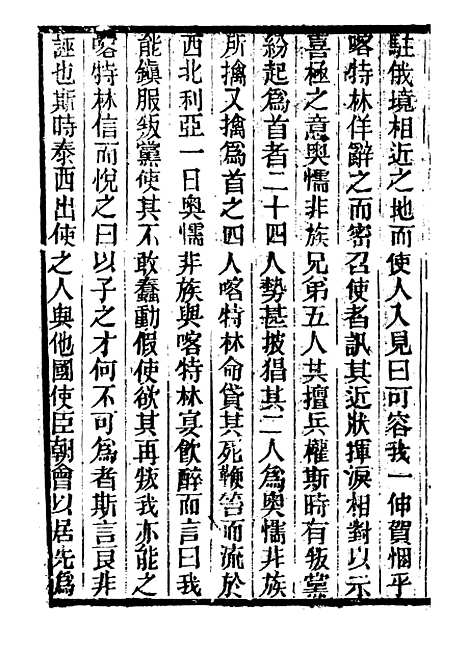 駐俄境相近之地而使人入見曰可容我一伸賀悃乎
喀特林佯辭之而密召使者訊其近狀揮淚相對以示
喜極之意奥懦非族兄弟五人其擅兵權斯時有叛黨
紛起爲首者二十四人勢甚披猖其二人爲奥懦非族
所擒又擒爲首之四人喀特林命貸其死鞭笞而流於
西北利亞一日奥懦非族與喀特林宴飲醉而言曰我
能鎮服叛黨使其不敢蠢動假使欲其再叛我亦能之
喀特林信而悅之曰以子之才何不可爲者斯言良非
誣也斯時泰西出使之人與他國使臣朝會以居先爲